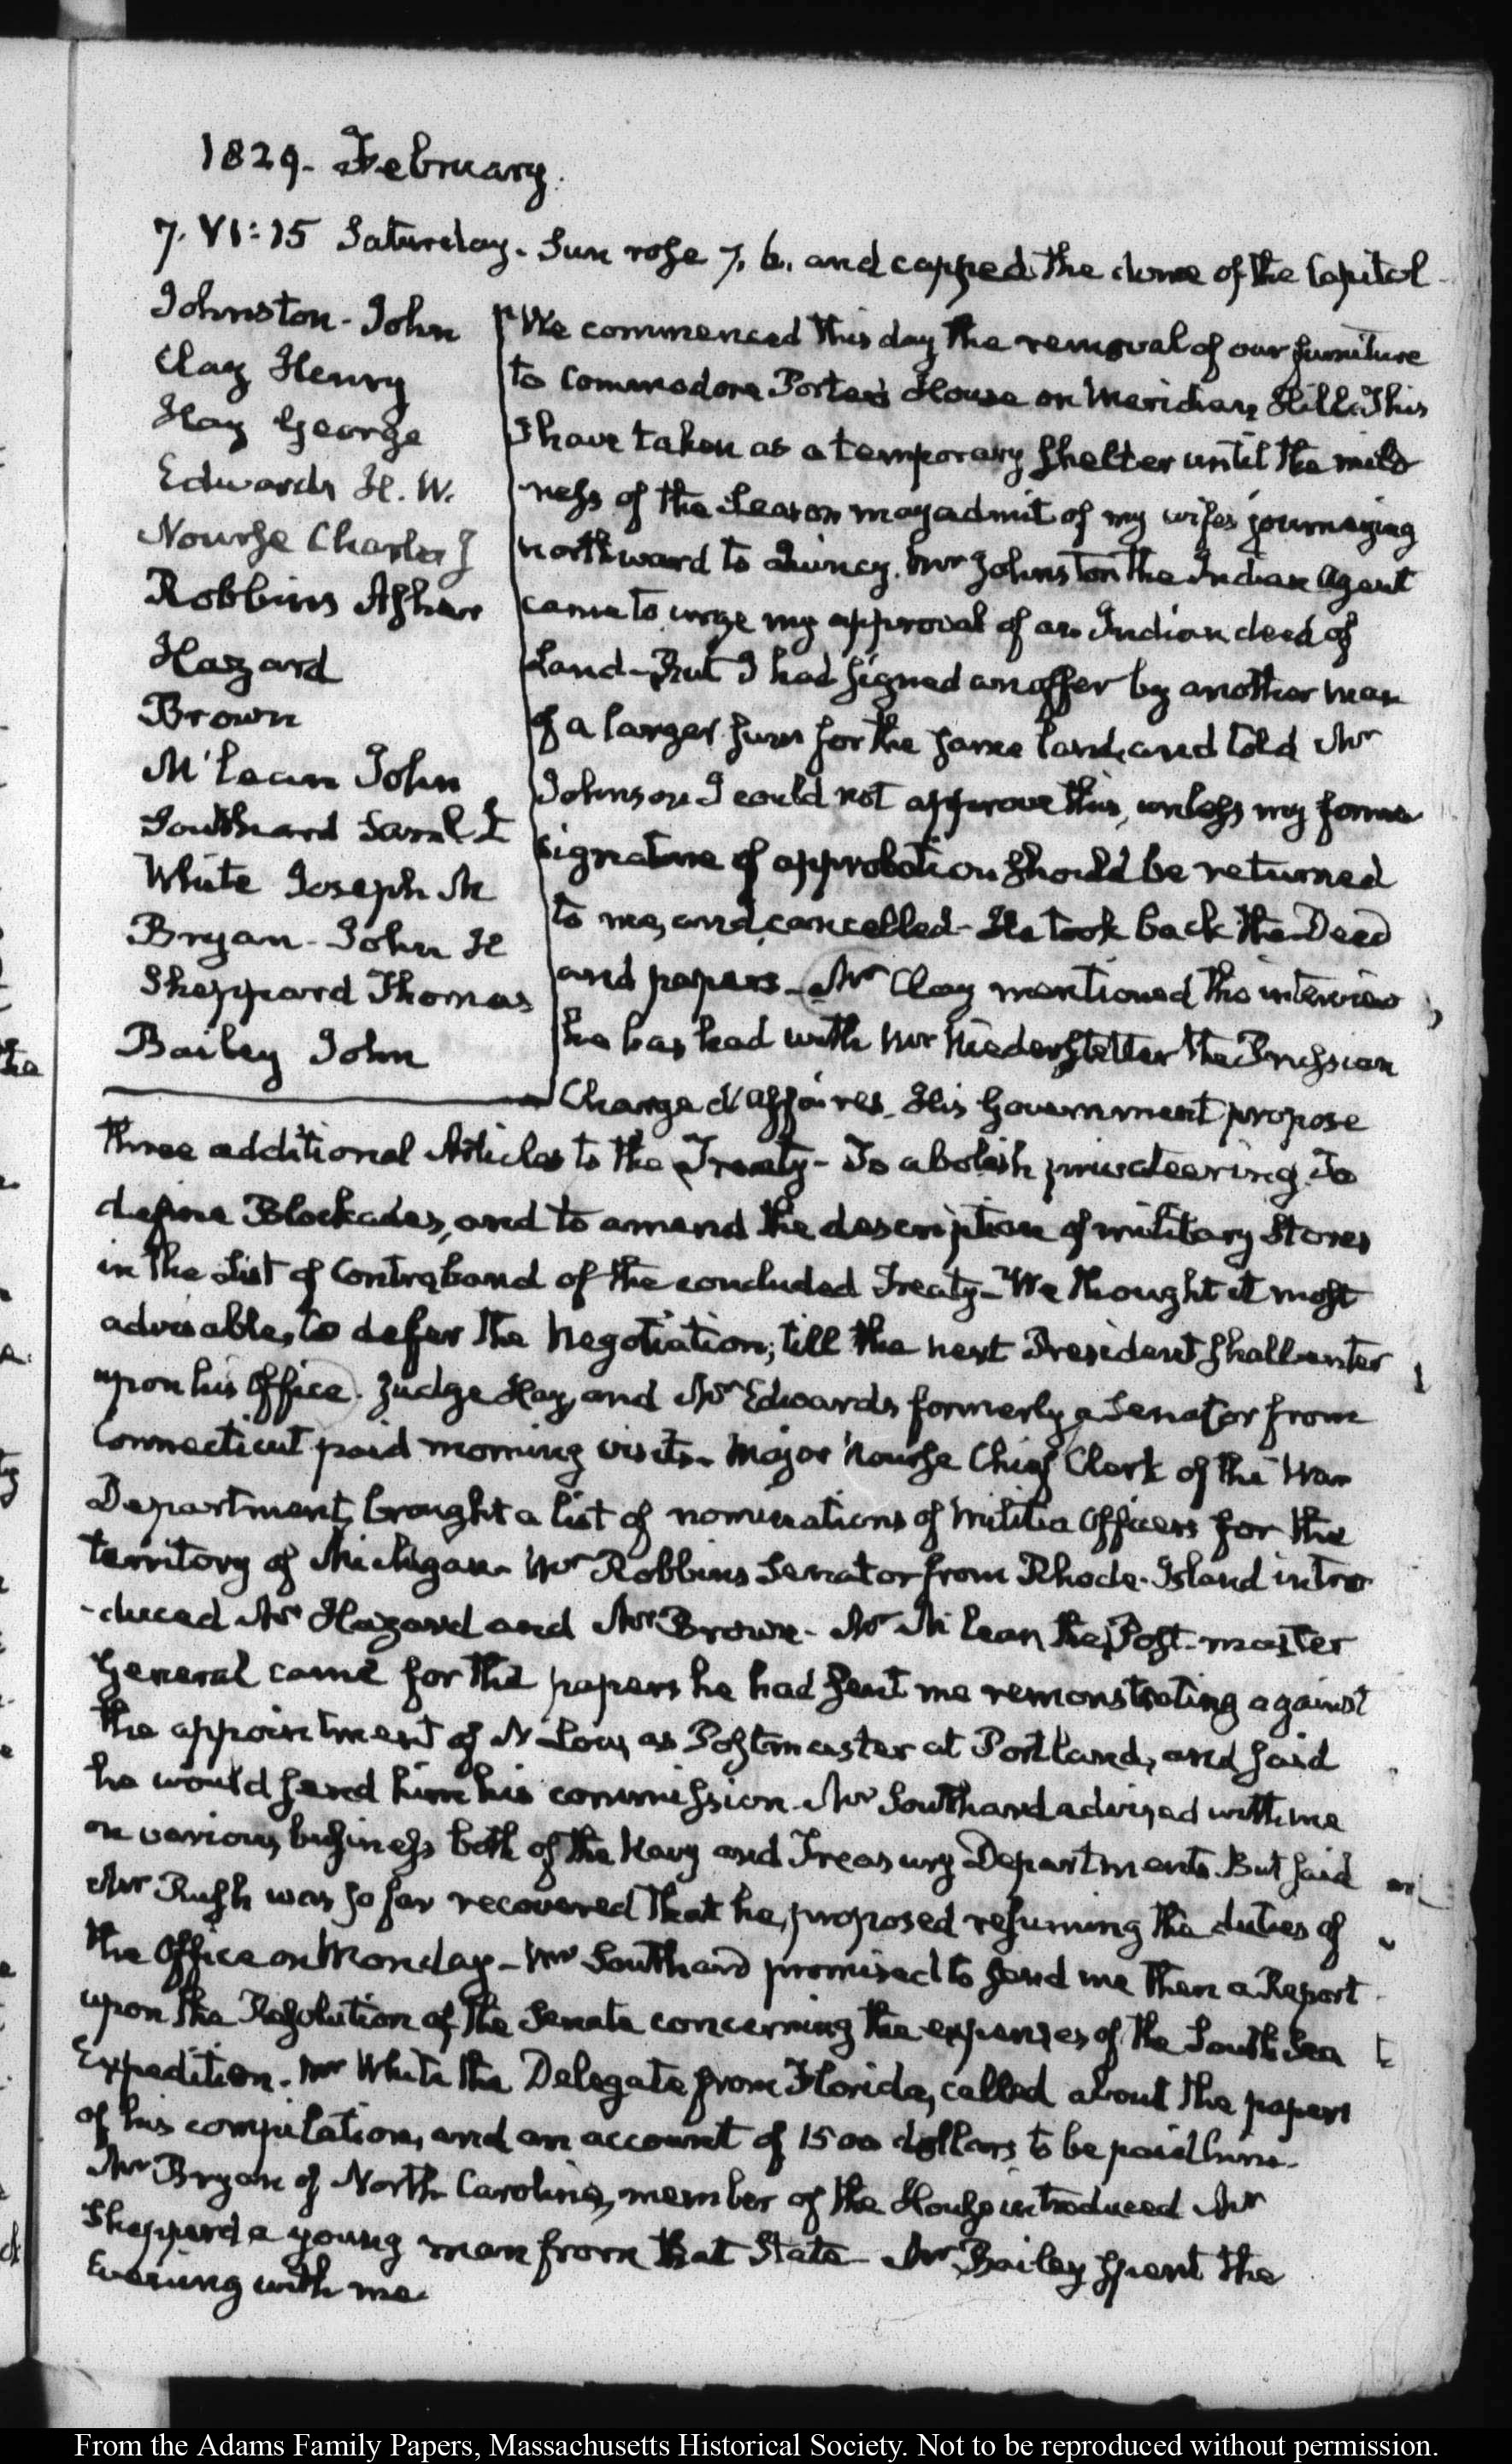 1829. February.
7. VI:15 Saturday. Sun rose 7. 6. and capped the dome of the Capitol
Johnston - John
Clay Henry
Hay George
Edwards H. W.
Nourse Charles J
Robbins Asher
Hazard
Brown
M'lean John
Southard Saml. L
White Joseph M
Bryan - John H
Sheppard Thomas
Bailey John
We commenced this day the removal of our furniture
to Commodore Porter's House on Meridian Hill. This
I have taken as a temporary shelter until the mild
ness of the season may admit of my wife's journeying
northward to Quincy. Mr Johnston the Indian Agent
came to urge my approval of an Indian deed of
Land - But I had signed an offer by another man
of a larger sum for the same land, and told Mr
Johnson I could not approve this, unless my former
signature of approbation should be returned
to me, and cancelled - He took back the Deed
and papers - Mr Clay mentioned the interview
he has had with Mr Niederstetter the Prussian
Chargé d'Affaires. His Government propose
three additional Articles to the Treaty - To abolish privateering. To
define Blockades, and to amend the description of military Stores
in the List of Contraband of the concluded Treaty - We thought it most
advisable, to defer the Negotiation; till the next President shall enter
upon his Office. Judge Hay, and Mr Edwards formerly a Senator from
Connecticut paid morning visits. Major Nourse Chief Clerk of the War
Department, brought a list of nominations of Militia Officers for the
territory of Michigan. Mr Robbins Senator from Rhode-Island intro
-duced Mr Hazard and Mr Brown - Mr McLean the Post-master
General came for the papers he had sent me remonstrating against
the appointment of N. Low, as Postmaster at Portland, and said
he would send him his commission. Mr Southard advised with me
on various business both of the Navy and Treasury Departments. But said
Mr Rush was so far recovered that he, proposed resuming the duties of
the Office on Monday - Mr Southard promised to send me then a Report
upon the Resolution of the Senate concerning the expenses of the South Sea
Expedition. Mr White the Delegate from Florida, called about the papers
of his compilation, and an account of 1500 dollars to be paid him.
Mr Bryan of North-Carolina, member of the House introduced Mr
Sheppard a young man from that State - Mr Bailey spent the
Evening with me.
From the Adams Family Papers, Massachusetts Historical Society. Not to be reproduced without permission.